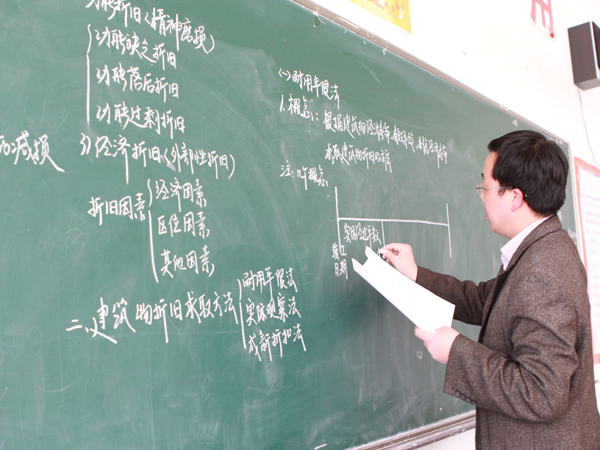 功能折旧(精神磨损)
功能缺乏折旧
功能落后折旧
功能过剩折旧
的减损
3)经济折旧(外部性折旧)
折旧因素
经济因素
区位因素
其他因素
二、建筑物折旧求取方法
耐用年限法
实际观察法
成新折扣法
(一)耐用年限法
1.概念:根据建筑物
求取建筑物折旧的方法
注:几个概念:
实际经过年数
竣工
日期